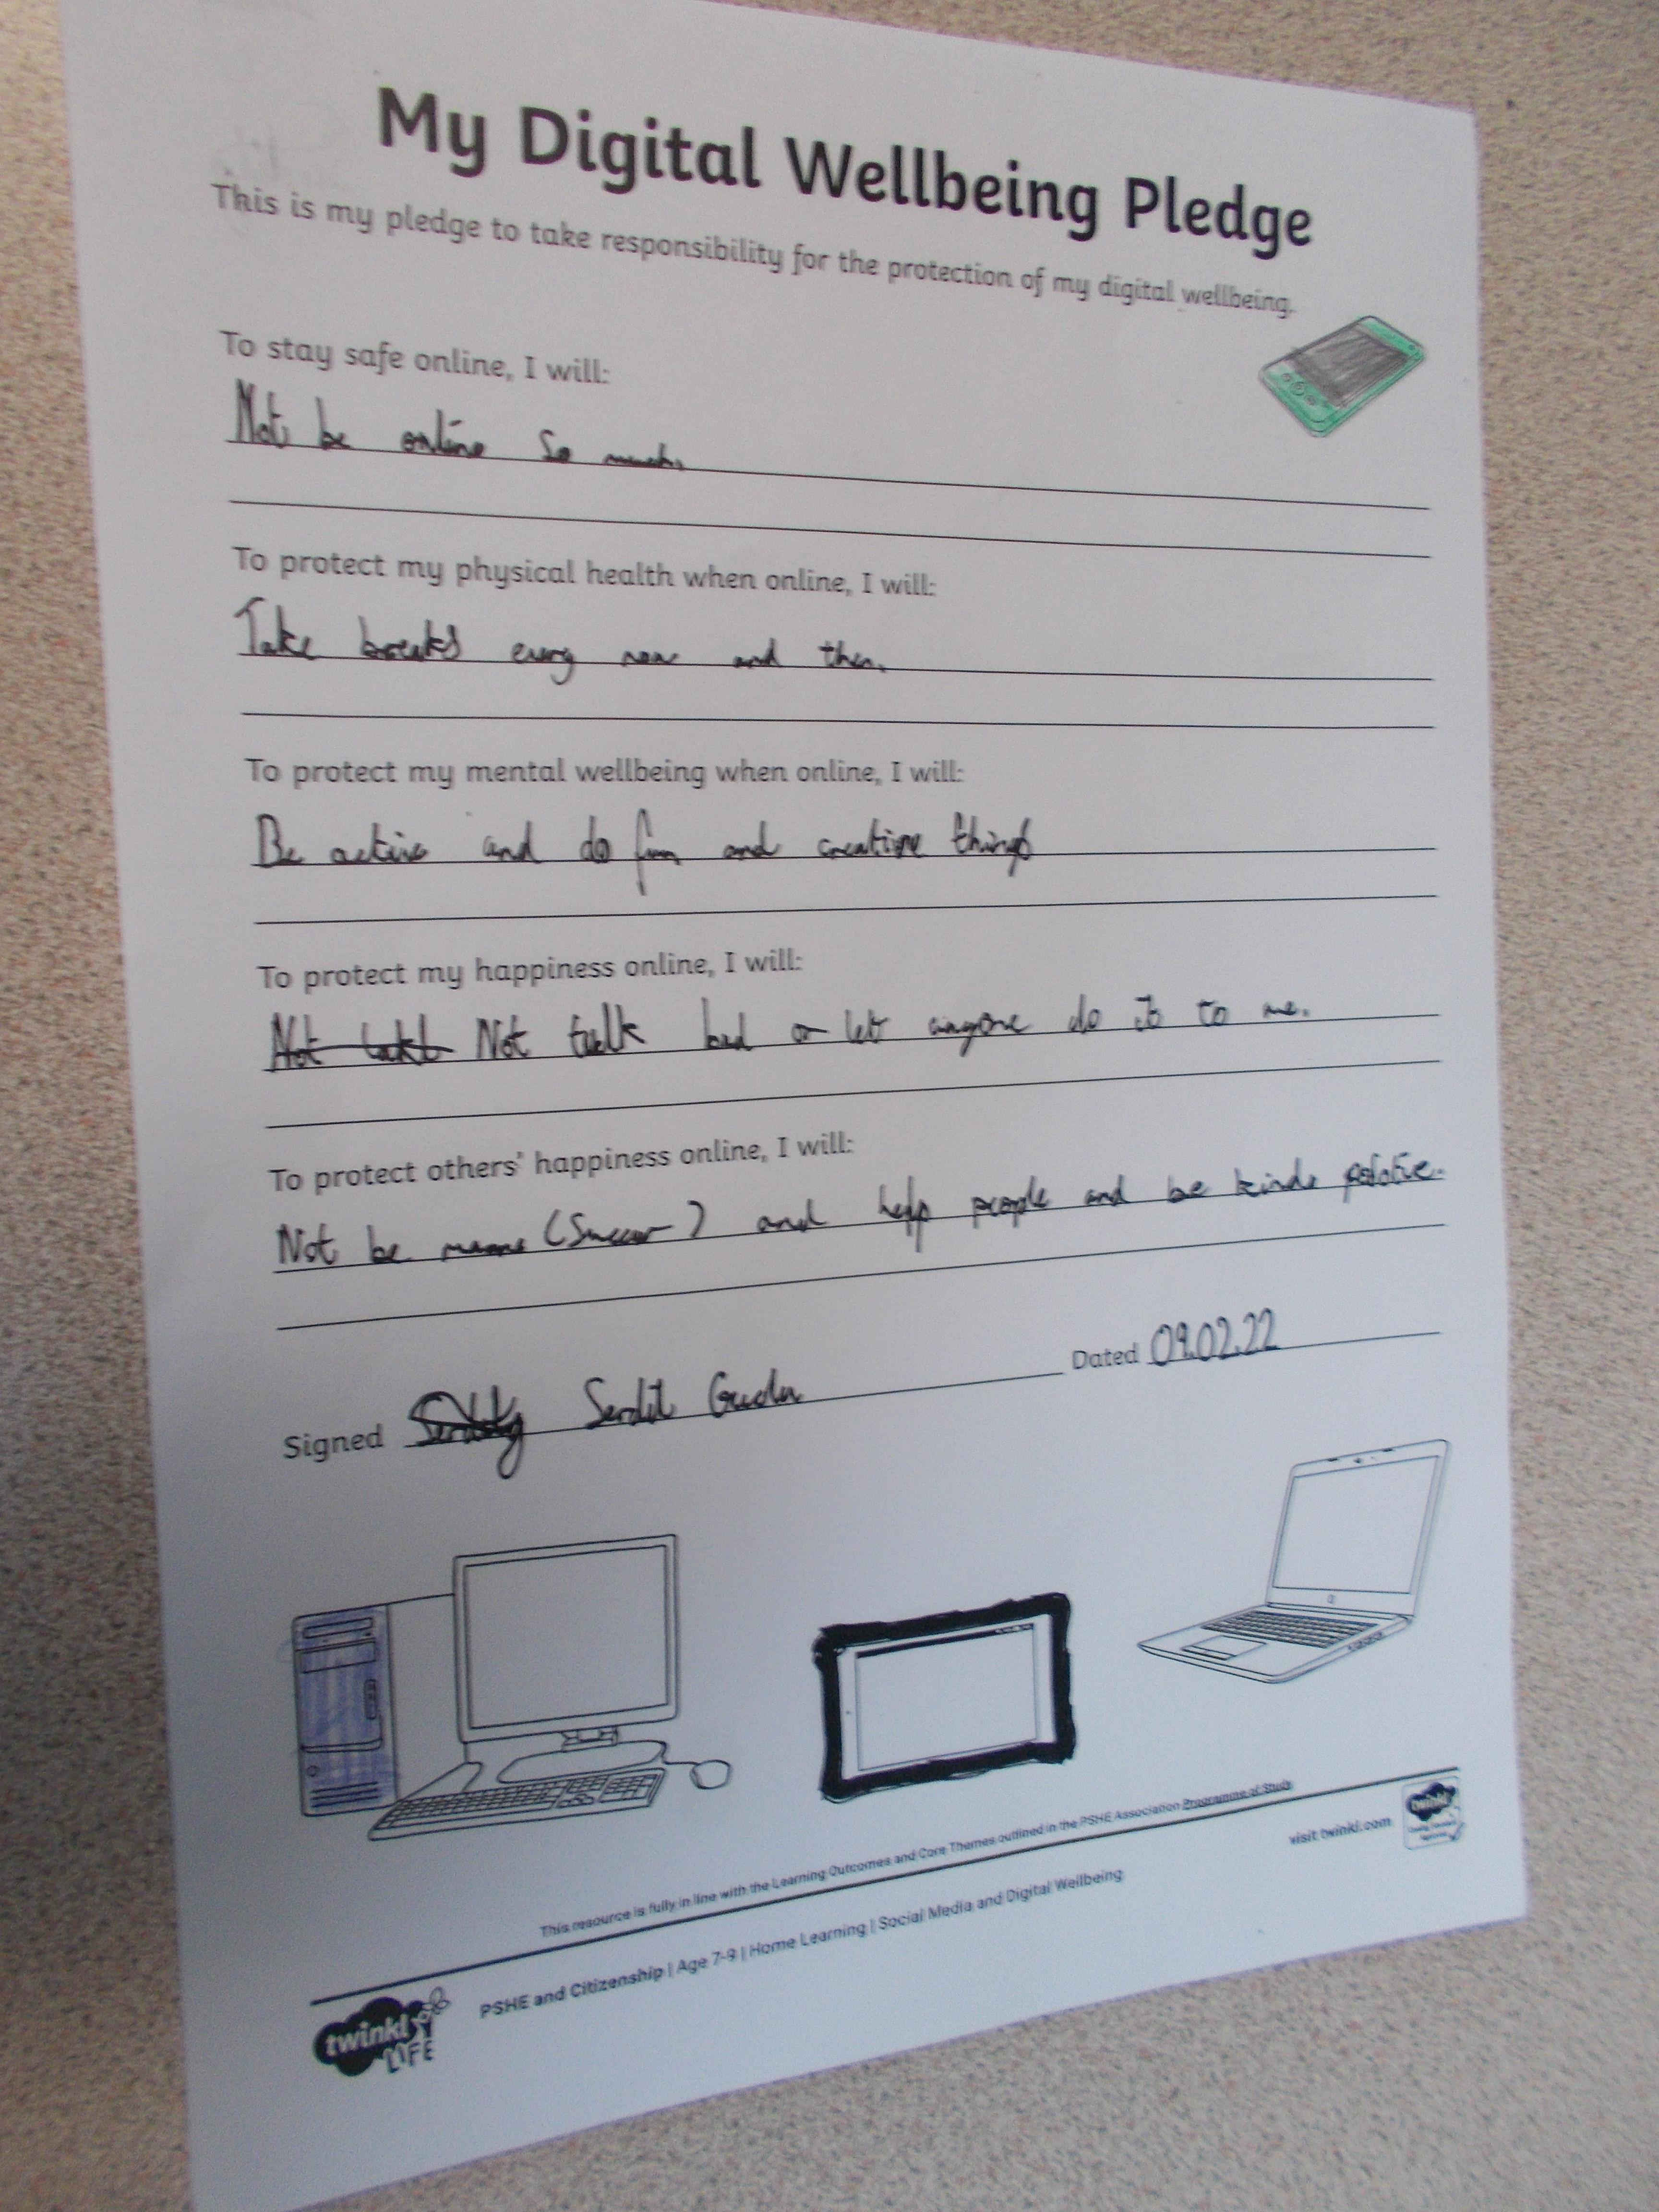 My Digital Wellbeing Pledge
This is my pledge to take responsibility for the protection of my digital wellbeing.
To stay safe online, I will:
Not be online so much.
To protect my physical health when online, I will:
Take breaks every now and then.
To protect my mental wellbeing when online, I will:
Be active and do fun and creative things
To protect my happiness online, I will:
Not talk bad or let anyone do it to me.
To protect others' happiness online, I will:
Not be and help people and be kind
Signed Dated 09.02.22
This resource is fully in line with the Learning Outcomes and Core Themes outlined in the PSHE Association Programme of Study
PSHE and Citizenship | Age 7-9 | Home Learning | Social Media and Digital Wellbeing
visit twinkl.com
twinkl
twinkl
LIFE